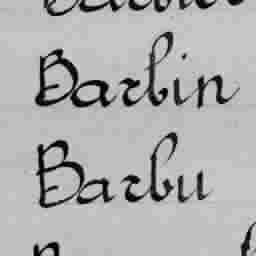 Barbin
Barbu